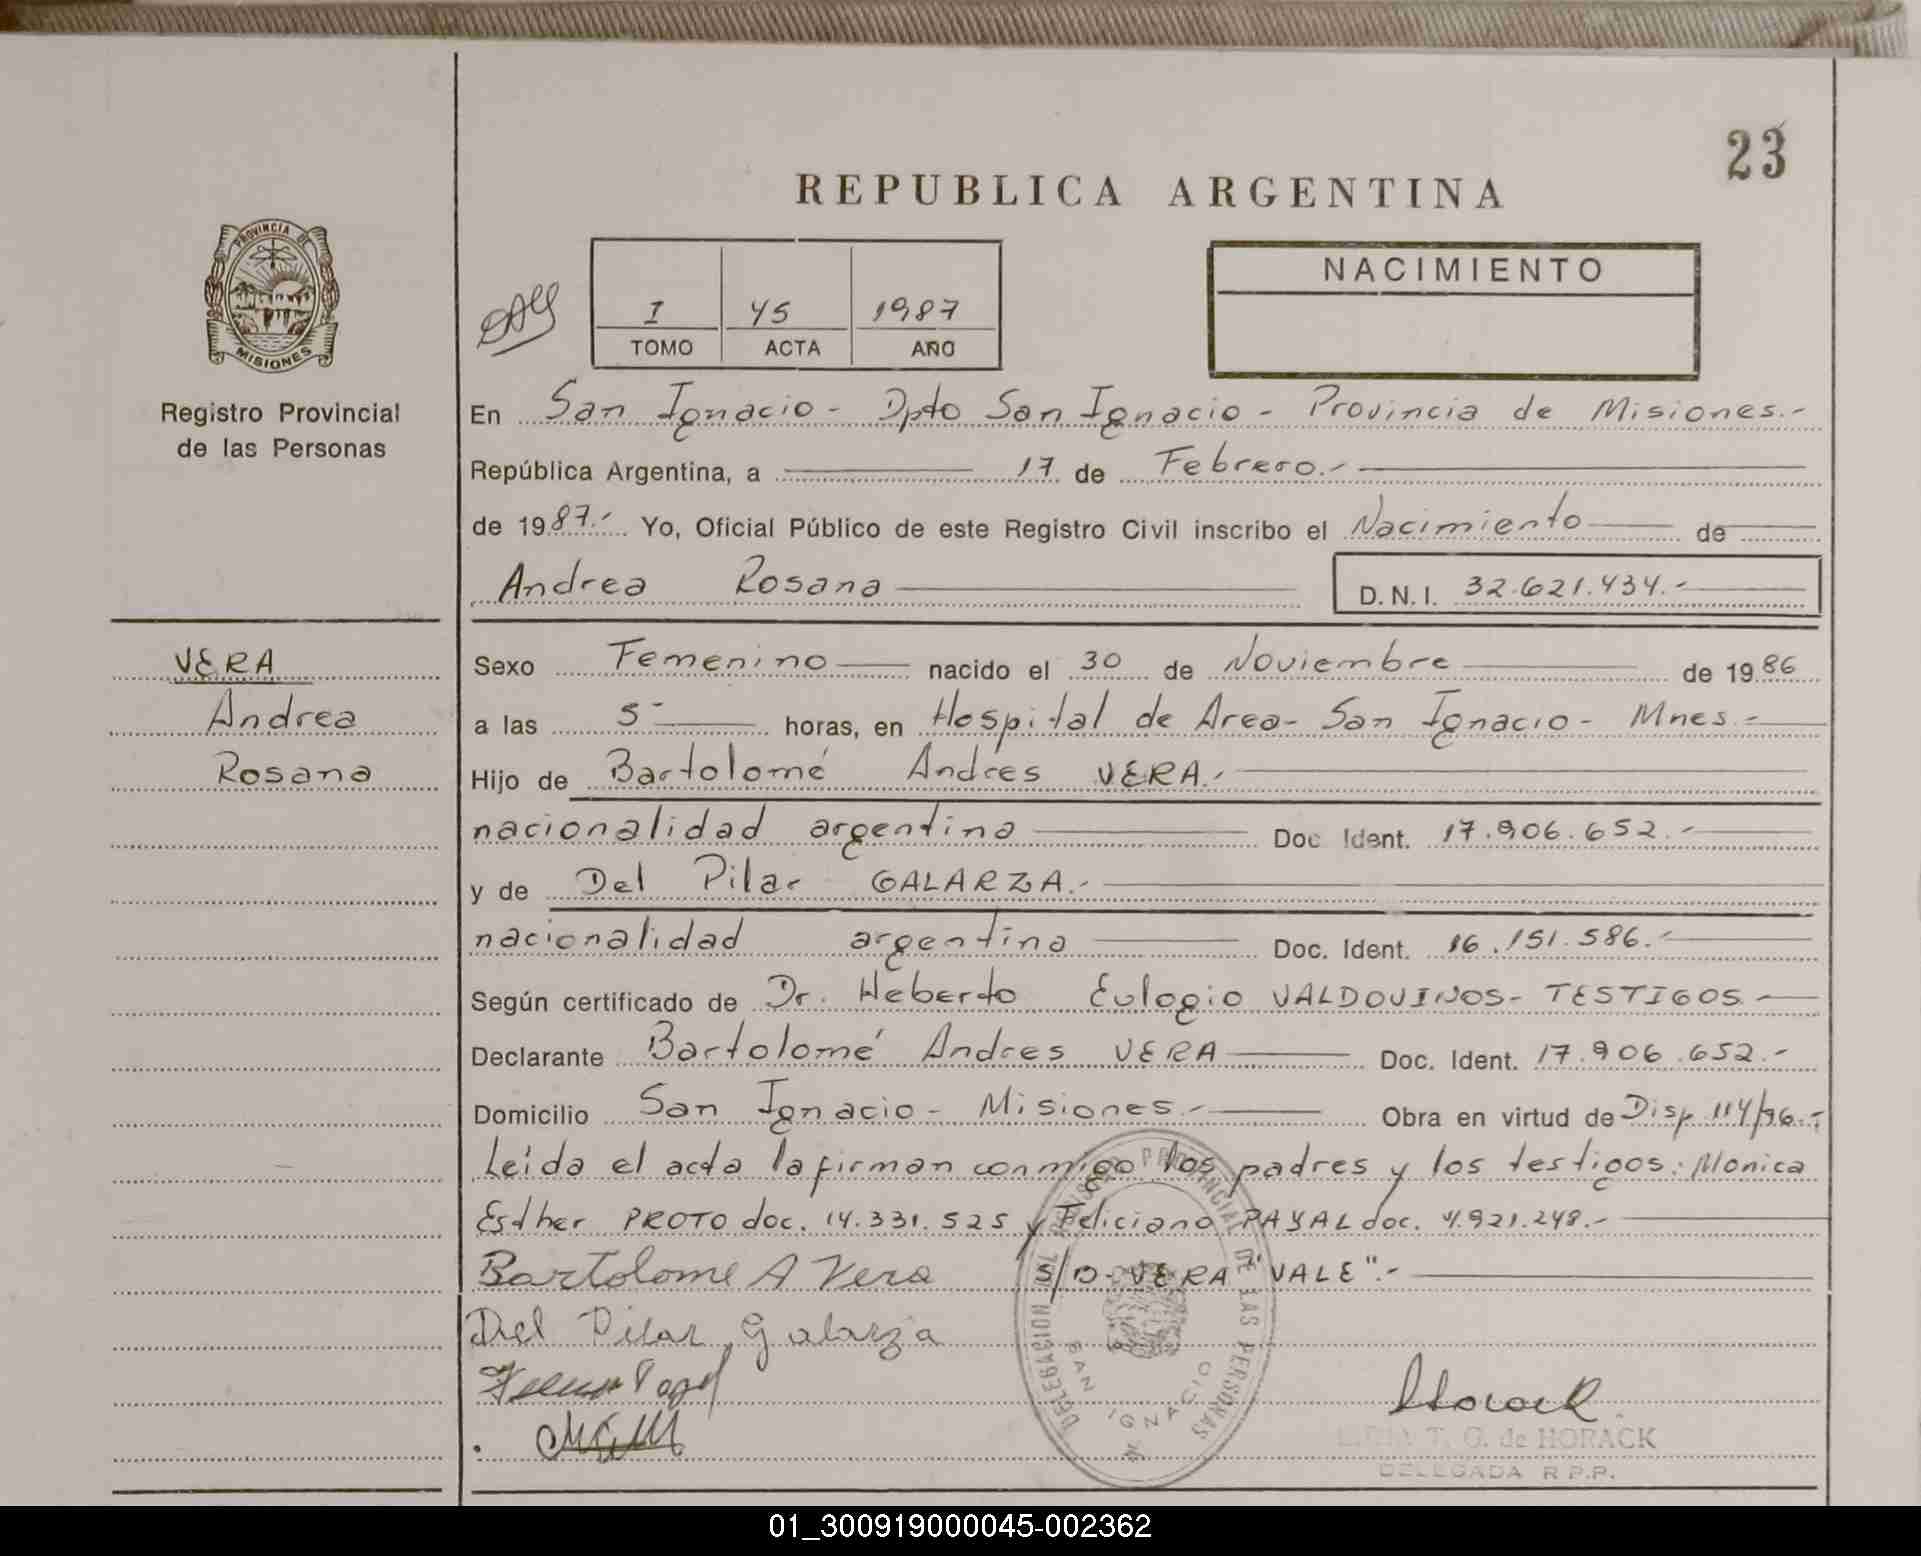 23
REPUBLICA ARGENTINA
PROVINCIA DE
MISIONES
Registro Provincial
de las Personas
I 45 1987
TOMO ACTA AÑO
NACIMIENTO
En San Ignacio - Dpto San Ignacio - Provincia de Misiones.-
República Argentina, a 17 de Febrero.-
de 1987.- Yo, Oficial Público de este Registro Civil inscribo el Nacimiento de
Andrea Rosana D.N.I. 32.621.434.-
VERA
Andrea
Rosana
Sexo Femenino nacido el 30 de Noviembre de 1986
a las 5- horas, en Hospital de Area- San Ignacio- Mnes.-
Hijo de Bartolomé Andres VERA.-
nacionalidad argentina Doc Ident. 17.906.652.-
y de Del Pilar GALARZA.-
nacionalidad argentina Doc. Ident. 16.151.586.-
Según certificado de Dr. Heberto Eulogio VALDOVINOS- TESTIGOS.-
Declarante Bartolomé Andres VERA Doc. Ident. 17.906.652.-
Domicilio San Ignacio- Misiones.- Obra en virtud de Disp.
Leída el acta la firman conmigo los padres y los testigos: Monica
Esther PROTO doc. 14.331.525 y Feliciano PAYAL doc. 4.921.248.-
Bartolome A Vera S/B- VERA "VALE".-
Del Pilar Galarza
DELEGACION DEL REGISTRO PROVINCIAL DE LAS PERSONAS
SAN IGNACIO
Horack
T. G. de HORACK
DELEGADA R.P.P.
01_300919000045-002362